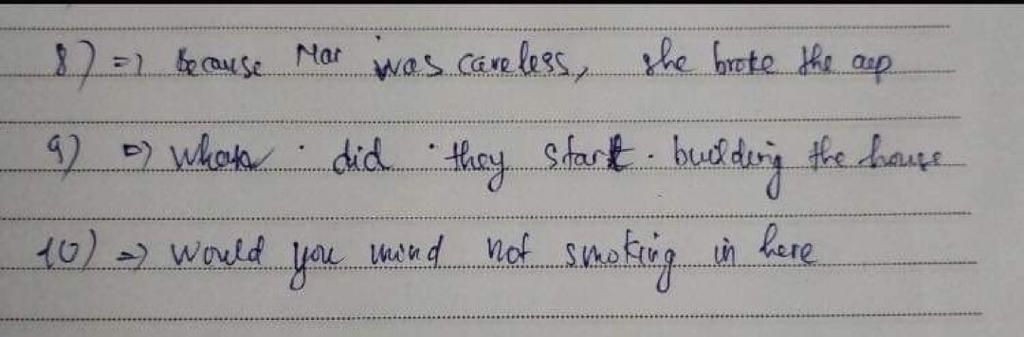 8) => Because Mar was careless, she broke the cup
9) => When did they start building the house
10) => Would you mind not smoking in here